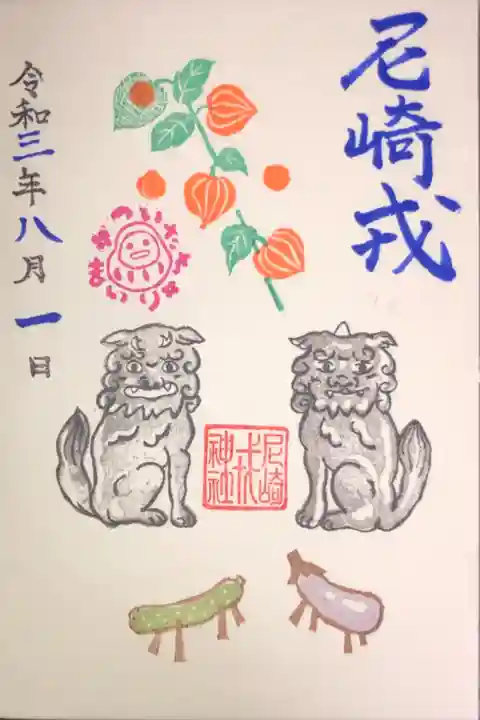 尼崎戎
ついたち
まいり
尼崎
戎
神社
令和三年八月一日